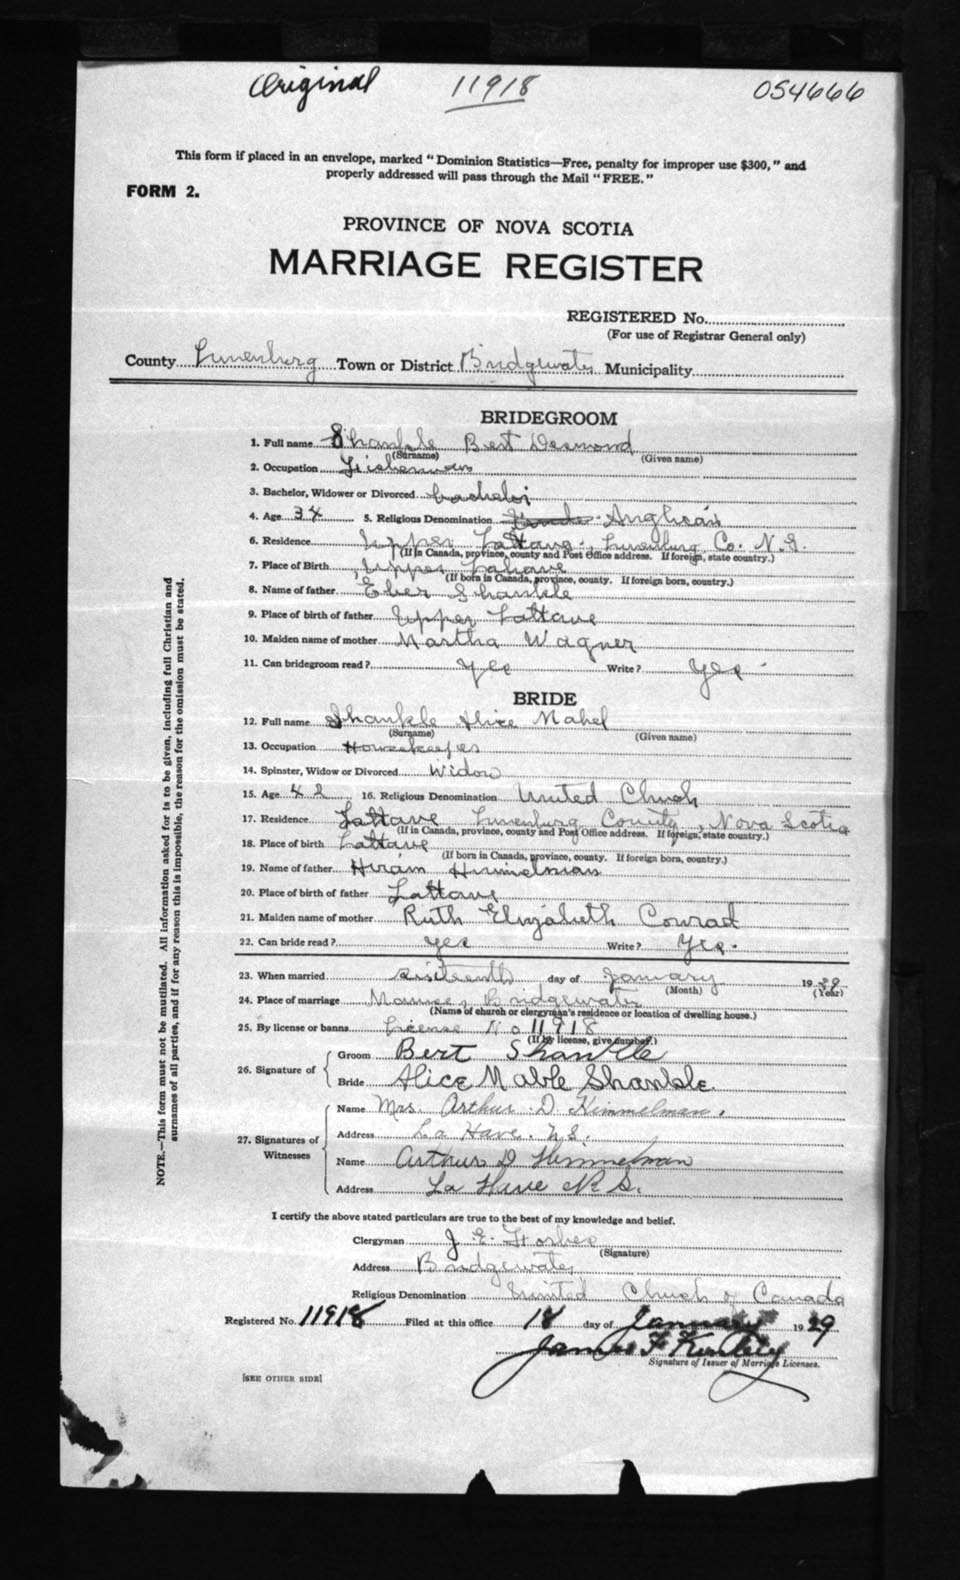 Original 11918 054666
This form if placed in an envelope, marked "Dominion Statistics—Free, penalty for improper use $300," and
properly addressed will pass through the Mail "FREE."
FORM 2.
PROVINCE OF NOVA SCOTIA
MARRIAGE REGISTER
REGISTERED No.
(For use of Registrar General only)
County Lunenburg Town or District Bridgewater Municipality
BRIDEGROOM
1. Full name Shankle Bert Desmond
(Surname) (Given name)
2. Occupation Fisherman
3. Bachelor, Widower or Divorced bachelor
4. Age 34 5. Religious Denomination Anglican
6. Residence Upper LaHave, Lunenburg Co. N.S.
(If in Canada, province, county and Post Office address. If foreign, state country.)
7. Place of Birth Upper Lahave
(If born in Canada, province, county. If foreign born, country.)
8. Name of father Eber Shankle
9. Place of birth of father Upper LaHave
10. Maiden name of mother Martha Wagner
11. Can bridegroom read? Yes Write? Yes
BRIDE
12. Full name Shankle Alice Mabel
(Surname) (Given name)
13. Occupation Housekeeper
14. Spinster, Widow or Divorced Widow
15. Age 42 16. Religious Denomination United Church
17. Residence LaHave Lunenburg County, Nova Scotia
(If in Canada, province, county and Post Office address. If foreign, state country.)
18. Place of birth LaHave
(If born in Canada, province, county. If foreign born, country.)
19. Name of father Hiram Himmelman
20. Place of birth of father LaHave
21. Maiden name of mother Ruth Elizabeth Conrad
22. Can bride read? yes Write? Yes.
23. When married sixteenth day of January 1929
(Month) (Year)
24. Place of marriage Manse, Bridgewater
(Name of church or clergyman's residence or location of dwelling house.)
25. By license or banns License No 11918
(If by license, give number.)
26. Signature of
Groom Bert Shankle
Bride Alice Mable Shankle.
27. Signatures of Witnesses
Name Mrs. Arthur D. Himmelman.
Address La Have. N.S.
Name Arthur D Himmelman
Address La Have N. S.
I certify the above stated particulars are true to the best of my knowledge and belief.
Clergyman J. E. Forbes
(Signature)
Address Bridgewater
Religious Denomination United Church of Canada
Registered No. 11918 Filed at this office 18 day of January 1929
James F Kinley
Signature of Issuer of Marriage Licenses.
[SEE OTHER SIDE]
NOTE.—This form must not be mutilated. All information asked for is to be given, including full Christian and
surnames of all parties, and if for any reason this is impossible, the reason for the omission must be stated.